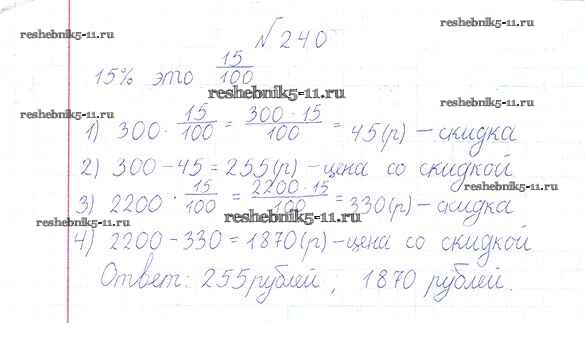 reshebnik5-11.ru
reshebnik5-11.ru
№ 240
15% это 15/100
reshebnik5-11.ru
reshebnik5-11.ru
reshebnik5-11.ru
1) 300 · 15/100 = 300 · 15/100 = 45(р) – скидка
2) 300 – 45 = 255(р) – цена со скидкой
reshebnik5-11.ru
3) 2200 · 15/100 = 2200 · 15/100 = 330(р) – скидка
reshebnik5-11.ru
reshebnik5-11.ru
4) 2200 – 330 = 1870(р) – цена со скидкой
Ответ: 255 рублей; 1870 рублей.